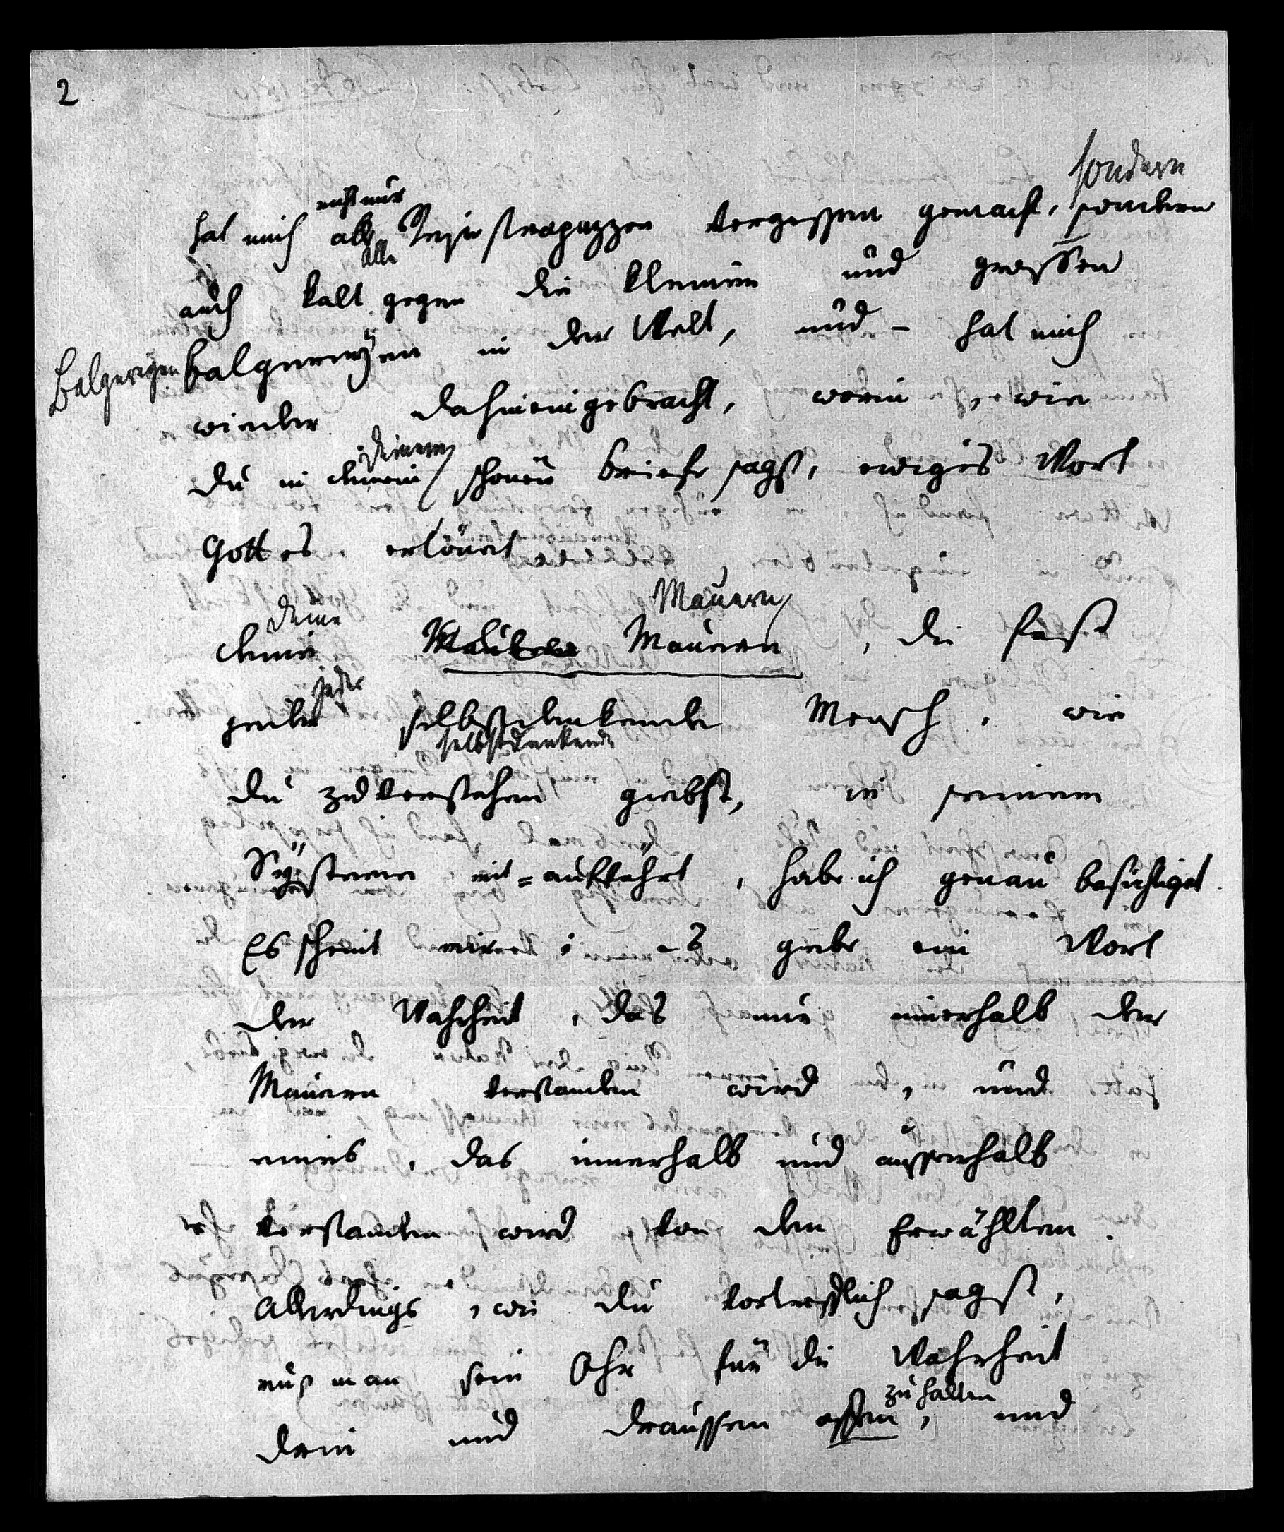 2
sondern
nicht nur
hat mich alle Reisestrapazzen vergessen gemacht, sondern
alle
auch kalt gegen die kleinen und grossen
Balgereyen Balgereyen in der Welt, und – hat mich
wieder dahineingebracht, worin, wie
deinem
du in deinem schönen Briefe sagst, ewiges Wort
Gottes ertönet.
deine Mauern
deine Mauern, die fast
jeder
jeder selbstdenkende Mensch, wie
selbstdenkende
du zu verstehen giebst, in seinem
Systeme mit = aufführt, habe ich genau besichtiget.
Es scheint mir: es gebe ein Wort
der Wahrheit, das nur innerhalb der
Mauern verstanden wird, und
eines, das innerhalb und ausserhalb
verstanden wird von den Erwählten.
Allerdings, wie du vortrefflich sagst,
muß man sein Ohr für die Wahrheit
zu halten
drin und draussen offen, und